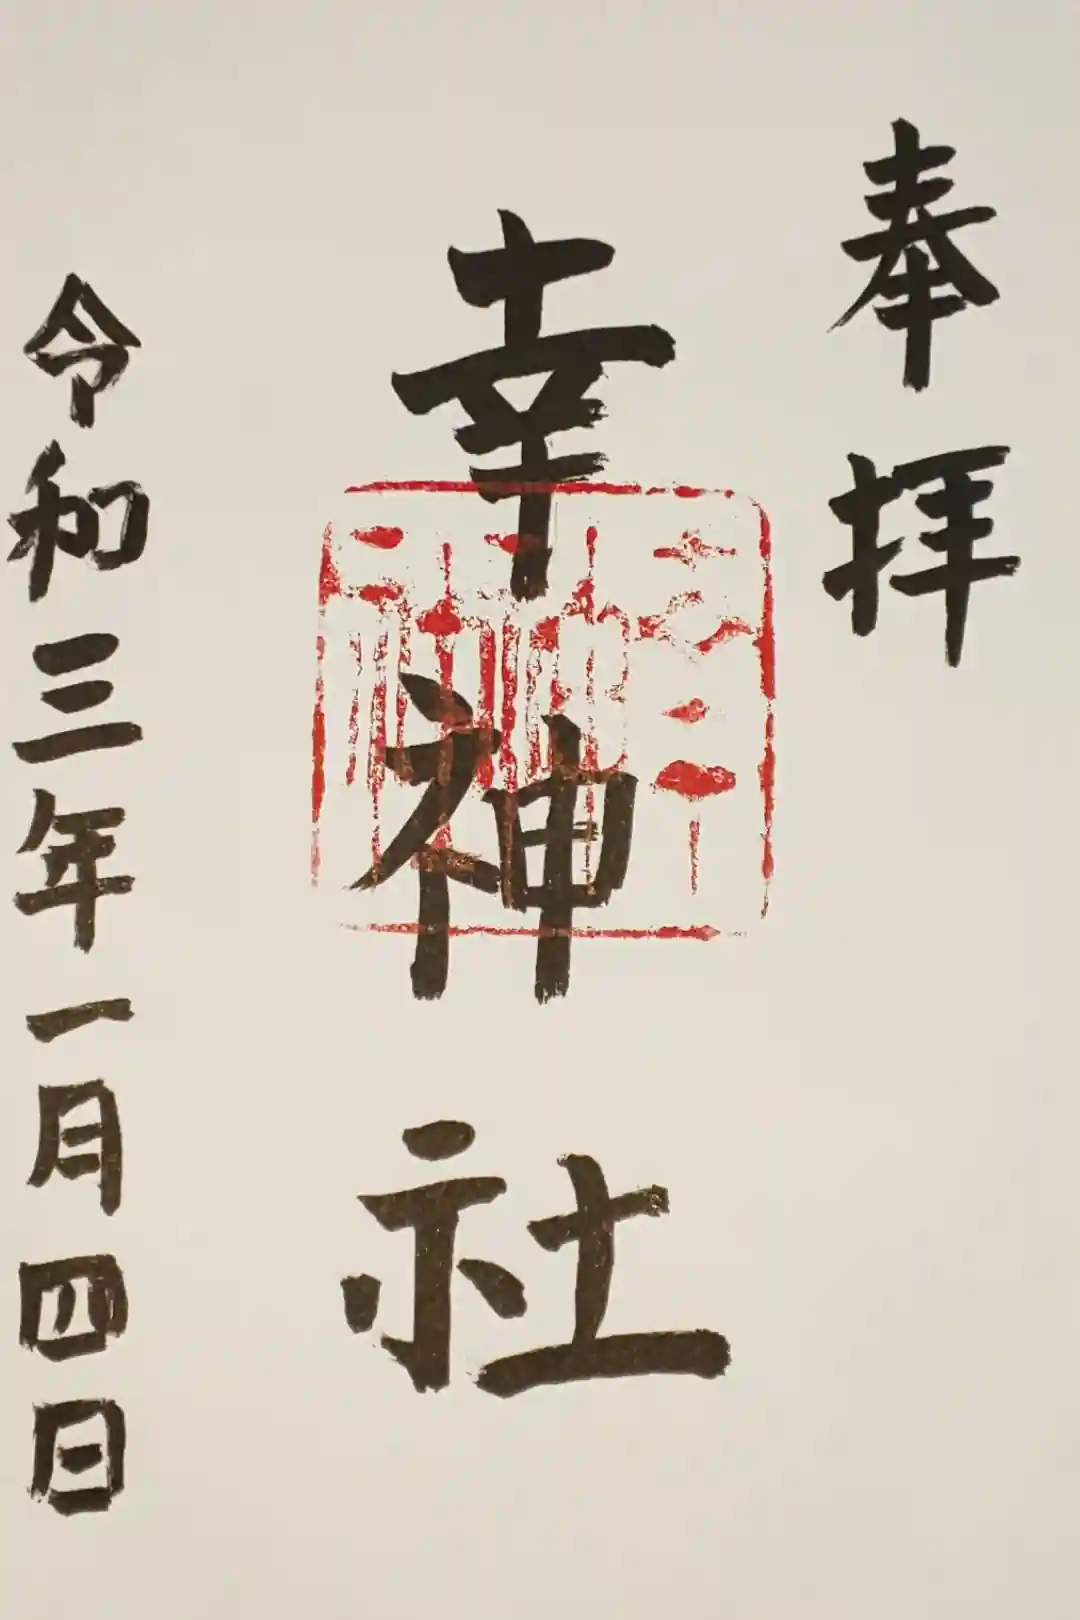 奉拝
幸神社
令和三年一月四日